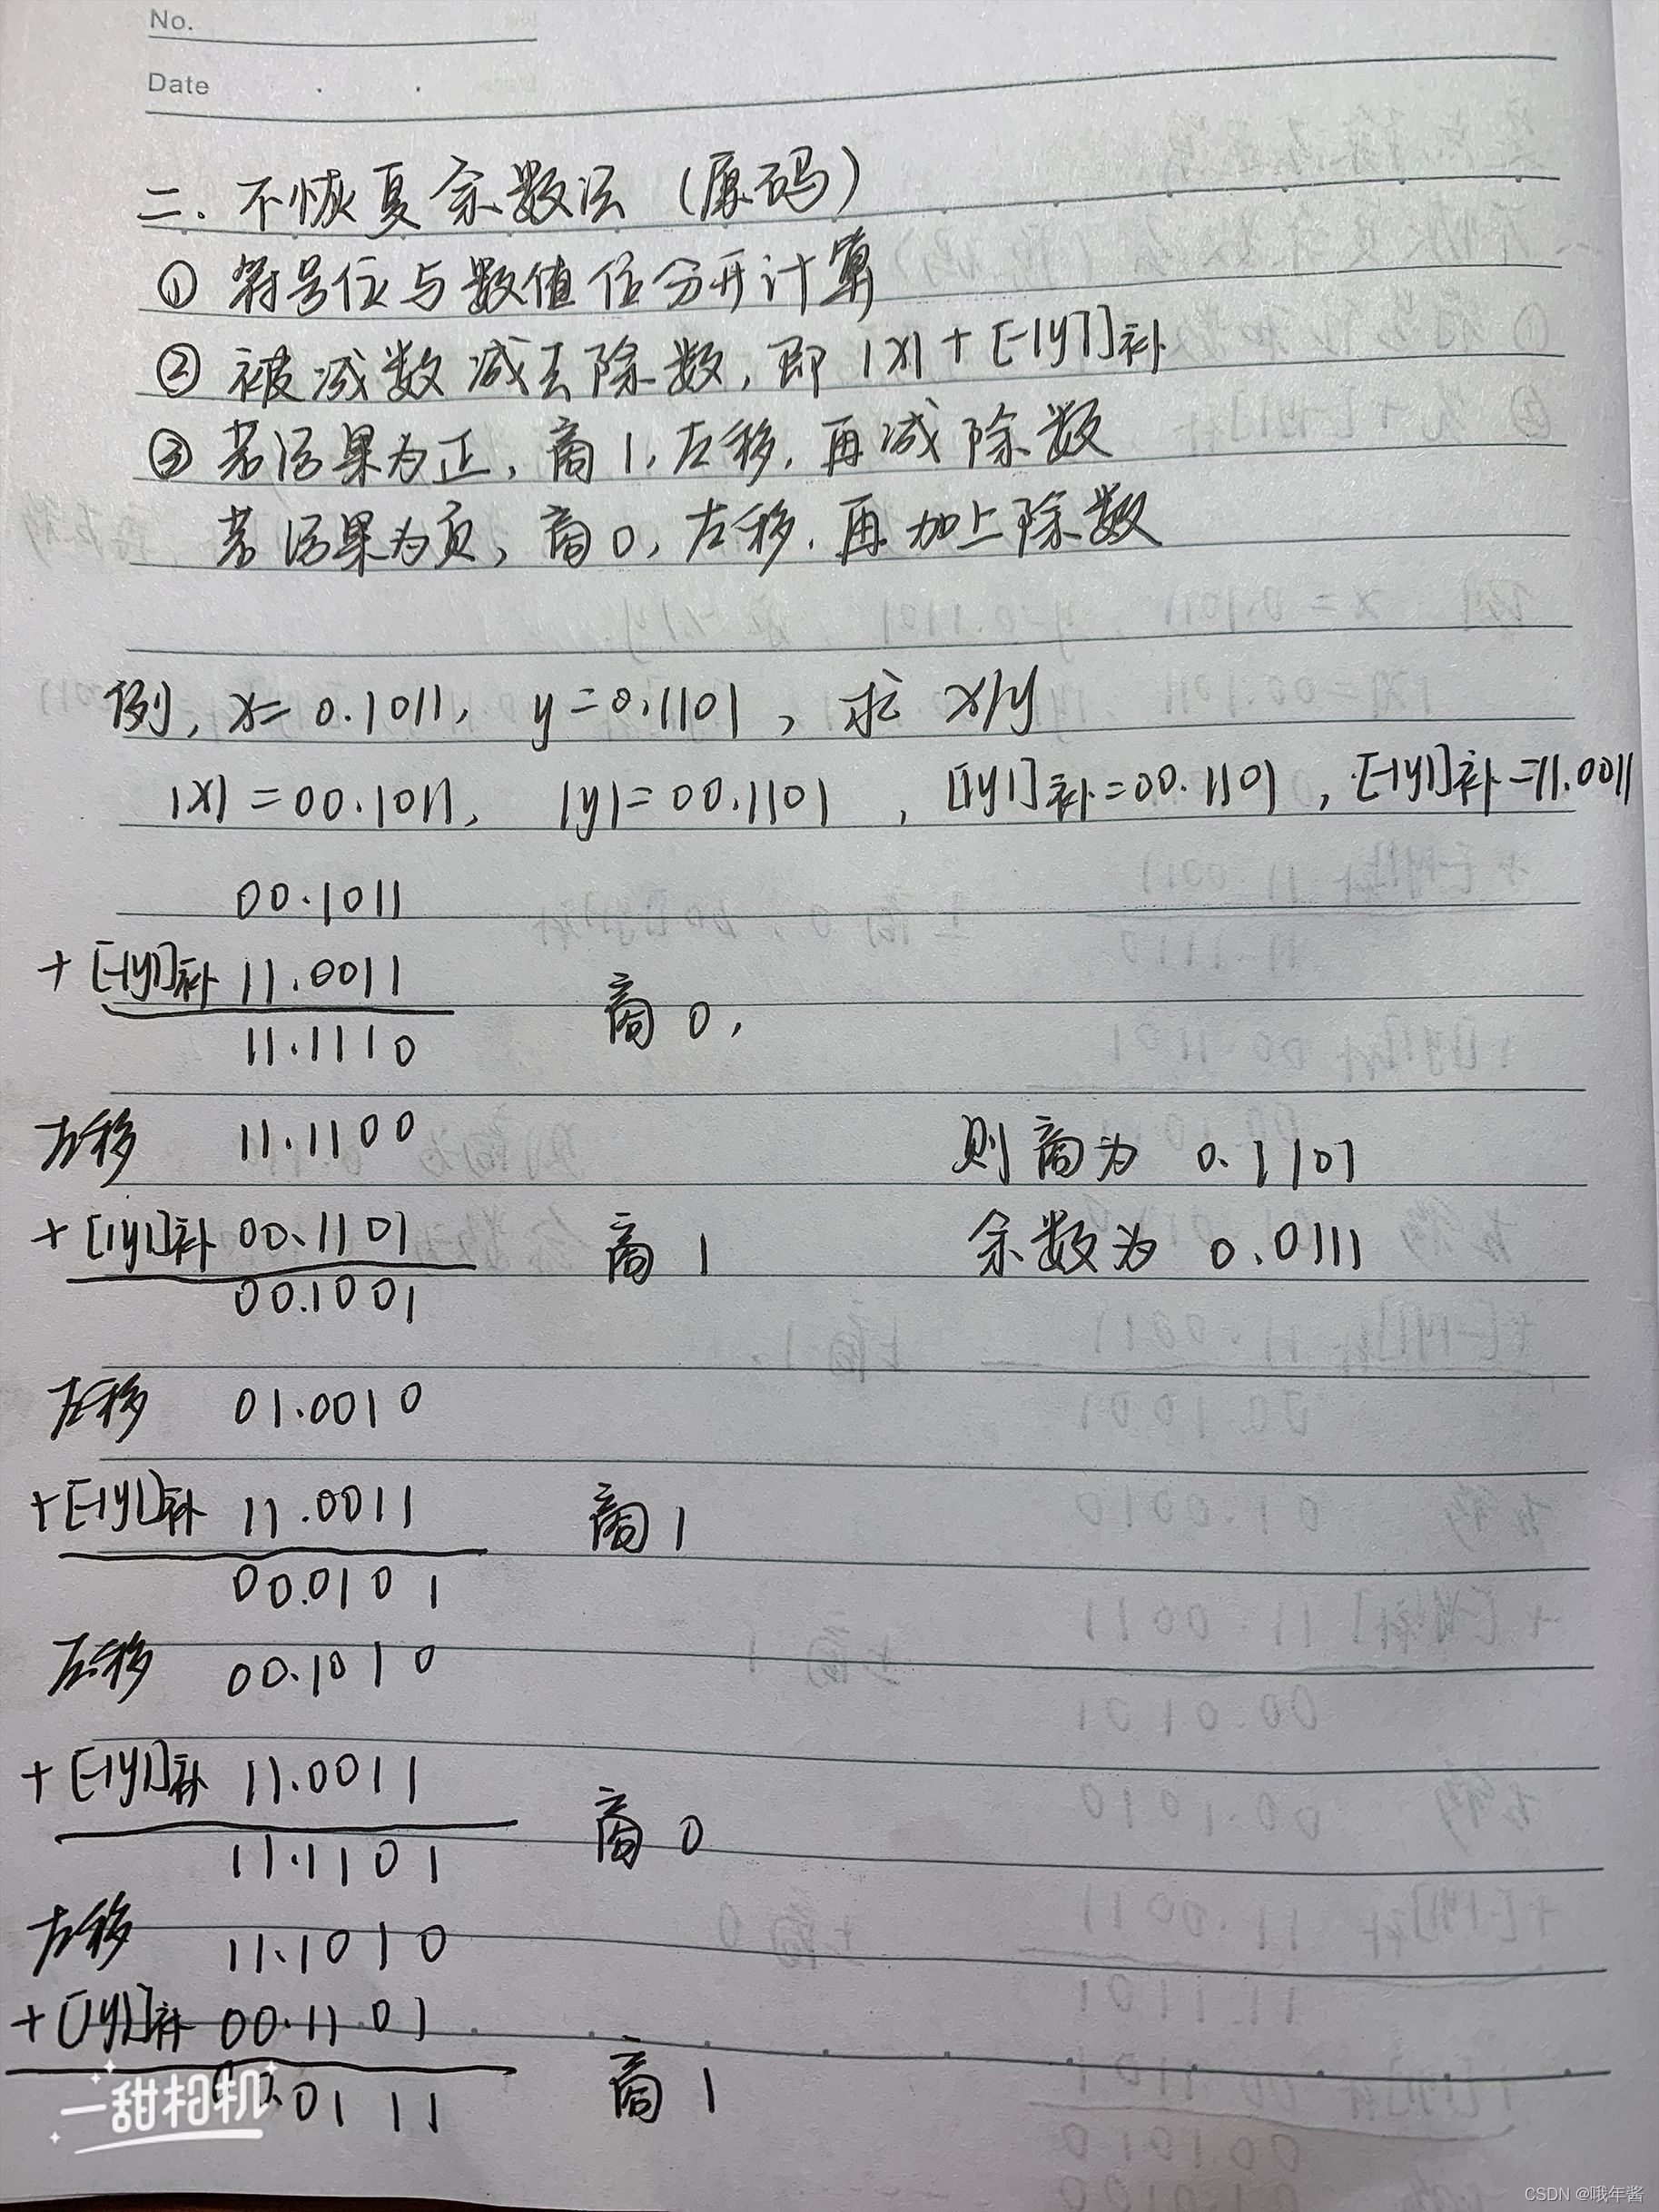 No.
Date
二. 不恢复余数法 (原码)
① 符号位与数值位分开计算
② 被减数减去除数, 即 |x| + [-|y|]补
③ 若结果为正, 商1, 左移, 再减除数
若结果为负, 商0, 左移, 再加上除数
例, x = 0.1011, y = 0.1101, 求 x/y
|x| = 00.1011, |y| = 00.1101, [|y|]补 = 00.1101, [-|y|]补 = 11.0011
00.1011
+ [-|y|]补 11.0011 商 0,
11.1110
左移 11.1100 则商为 0.1101
+ [|y|]补 00.1101 商 1 余数为 0.0111
00.1001
左移 01.0010
+ [-|y|]补 11.0011 商 1
00.0101
左移 00.1010
+ [-|y|]补 11.0011 商 0
11.1101
左移 11.1010
+ [|y|]补 00.1101
00.0111 商 1
一甜相机
CSDN @哦年酱